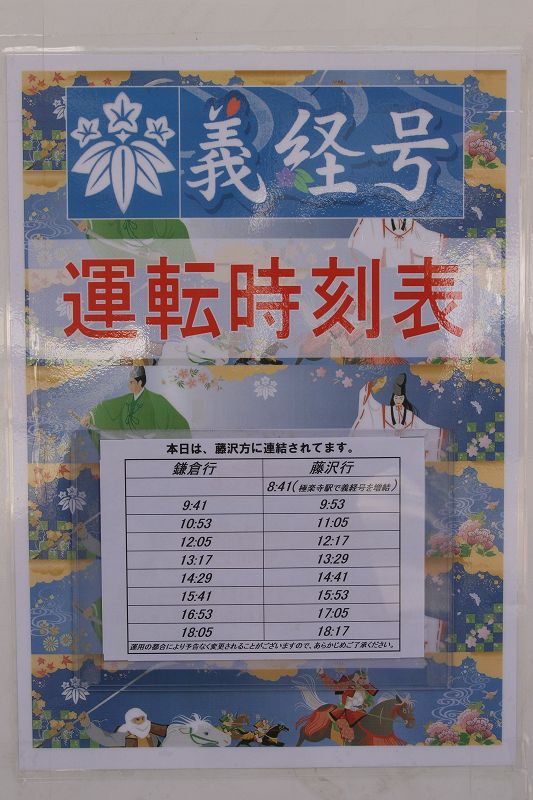 義経号
運転時刻表
本日は、藤沢方に連結されてます。
鎌倉行 藤沢行
8:41(極楽寺駅で義経号を増結)
9:41 9:53
10:53 11:05
12:05 12:17
13:17 13:29
14:29 14:41
15:41 15:53
16:53 17:05
18:05 18:17
運用の都合により予告なく変更されることがございますので、あらかじめご了承ください。